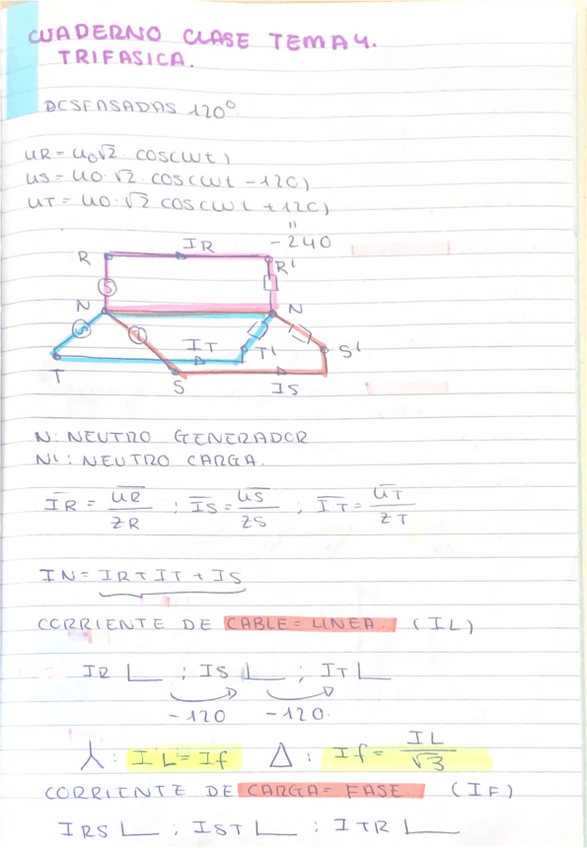 CUADERNO CLASE TEMA 4.
TRIFASICA.
DESFASADAS 120°
UR = U0√2 · COS(WT)
US = U0 · √2 · COS(WT - 120)
UT = U0 · √2 COS(WT + 120)
"
-240
R IR R'
S
N N
S S
IT T' S'
T
S IS
N: NEUTRO GENERADOR
N': NEUTRO CARGA.
I̅R̅ = U̅R̅/ZR ; I̅S̅ = U̅S̅/ZS ; I̅T̅ = U̅T̅/ZT
IN = IR + IT + IS
CORRIENTE DE CABLE = LINEA. (IL)
IR ∟ ; IS ∟ ; IT ∟
-120 -120.
⅄ : IL = If Δ : If = IL/√3
CORRIENTE DE CARGA = FASE. (IF)
IRS ∟ ; IST ∟ ; ITR ∟